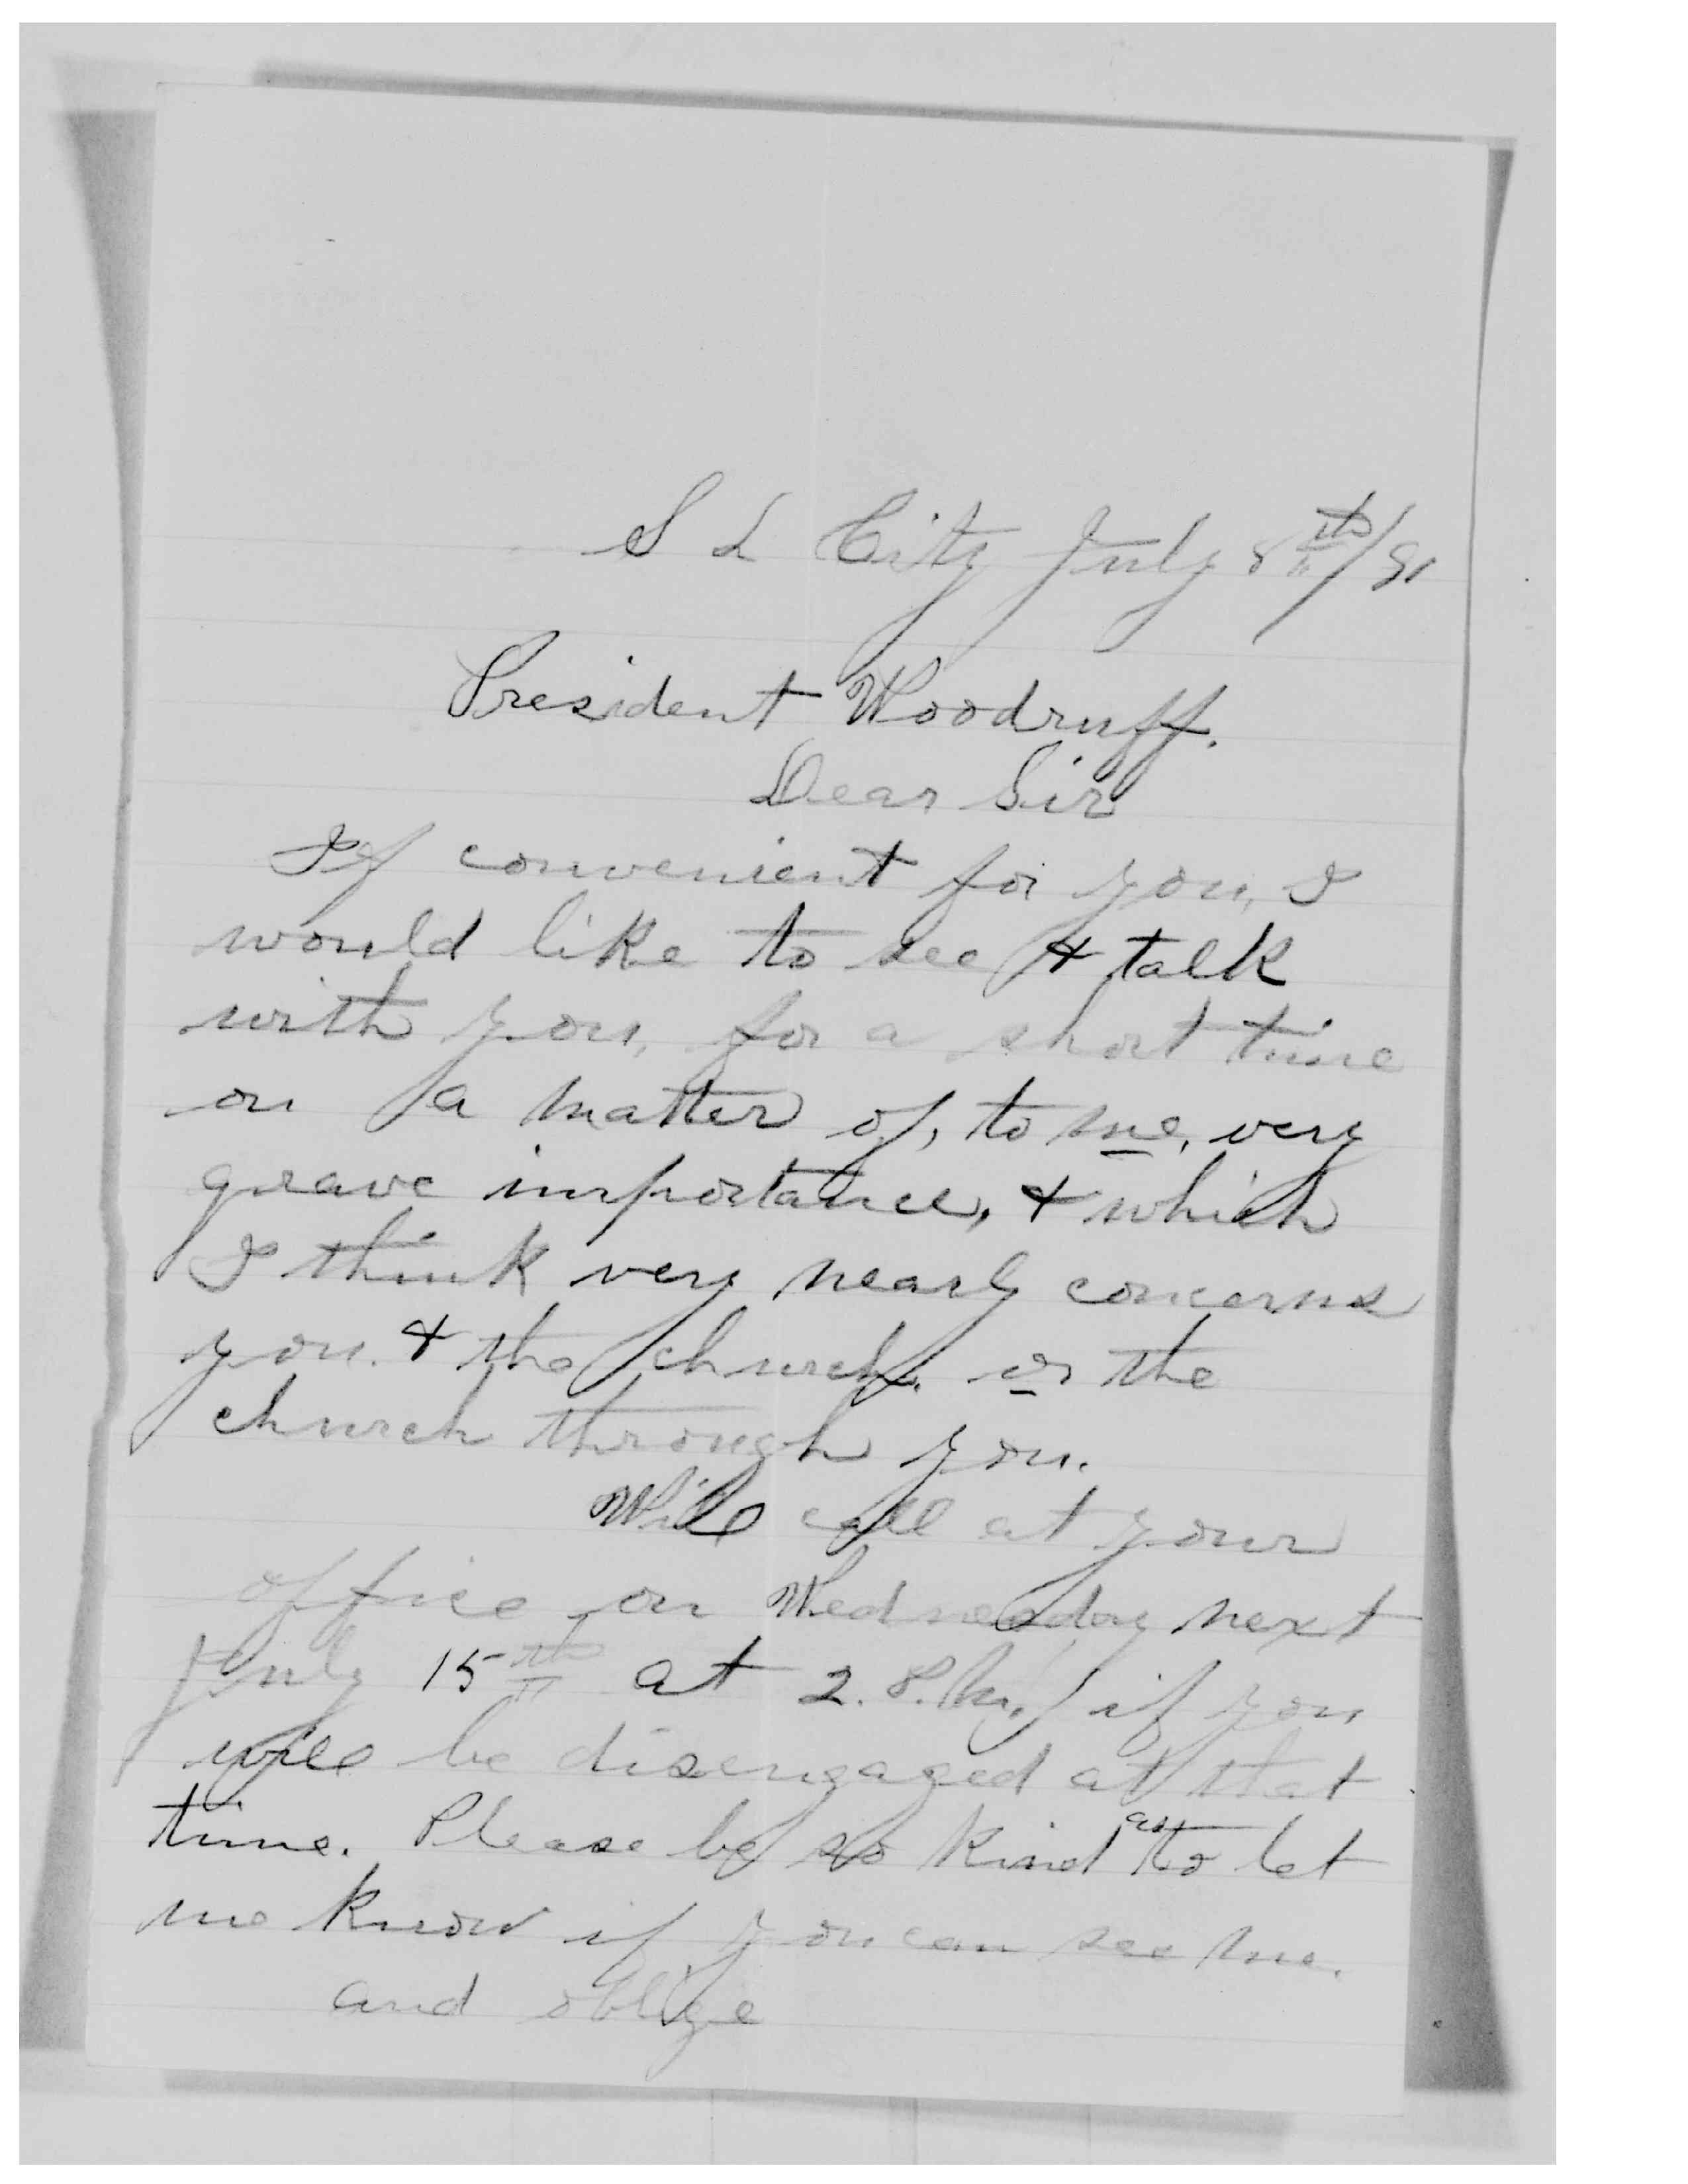 S L City July 8th/91
President Woodruff.
Dear Sir
If convenient for you, I
would like to see & talk
with you, for a short time
on a matter of, to me, very
grave importance, & which
I think very nearly concerns
you. & the church. or the
church through you.
Will call at your
office on Wednesday next
July 15th at 2. P.M., if you
will be disengaged at that
time. Please be so kind as to let
me know if you can see me.
and oblige